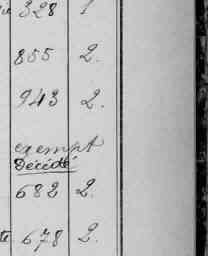 328 1
855 2.
943 2.
exempt
Décédé
682 2.
678 2.